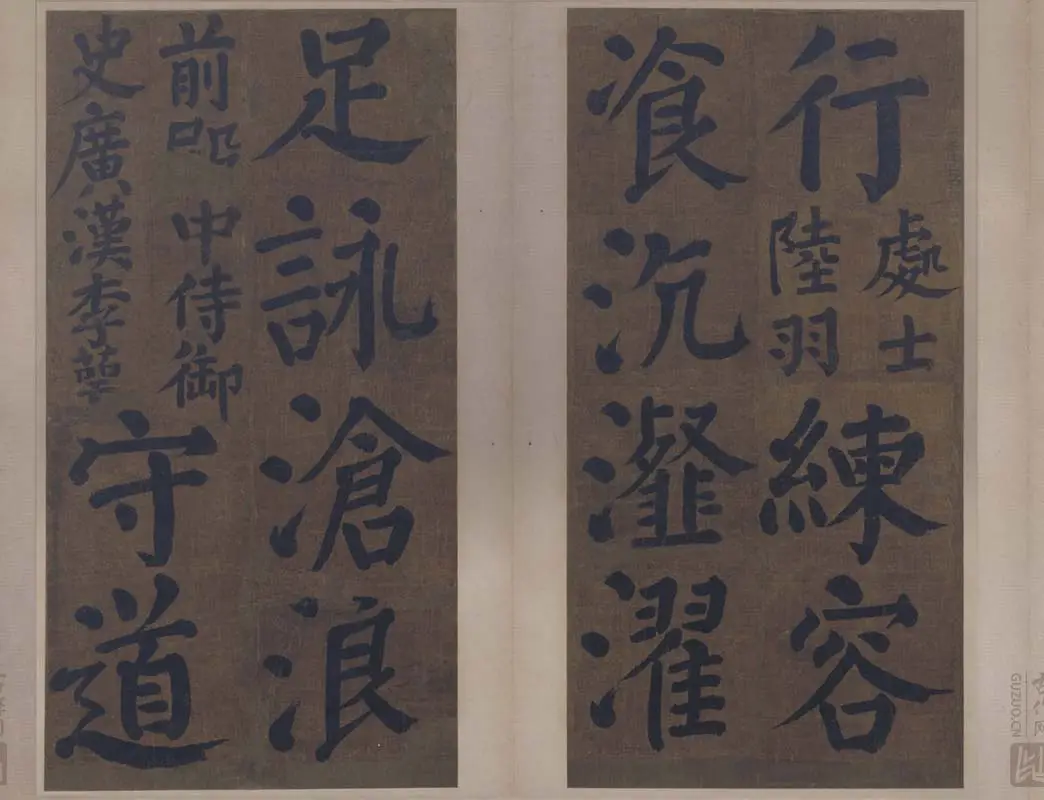 行
處士
陸羽
練容
飡沆瀣濯
足詠滄浪
前 中侍御
史廣漢李蕚
守道
GUZUO.CN